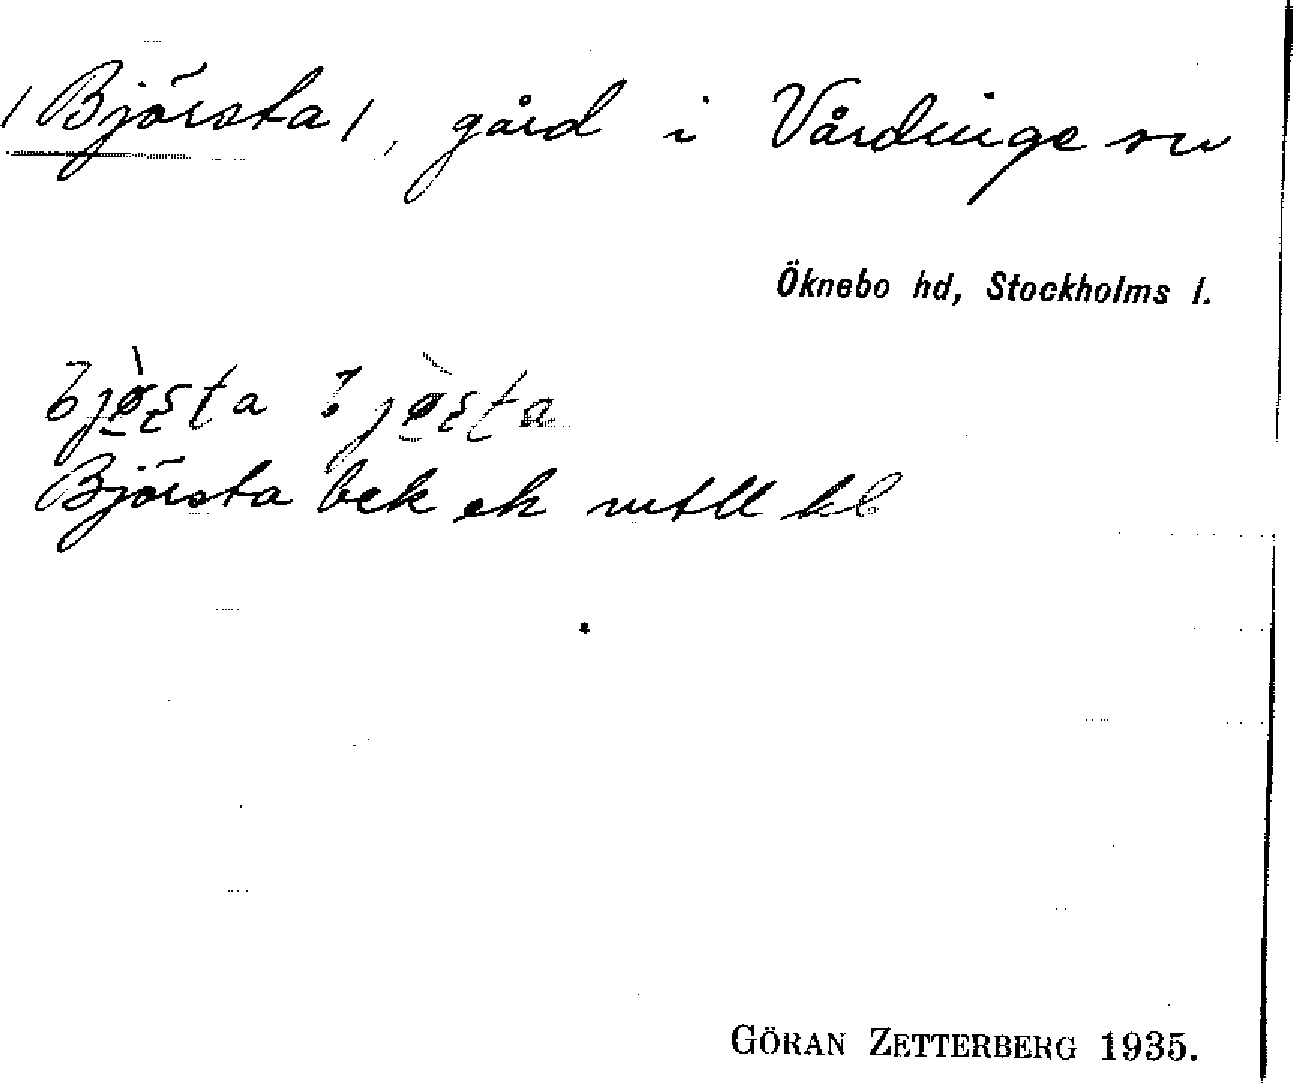 /Björsta/, gård i Vårdinge sn
Öknebo hd, Stockholms l.
Björsta bek ek mtll hl
GÖRAN ZETTERBERG 1935.